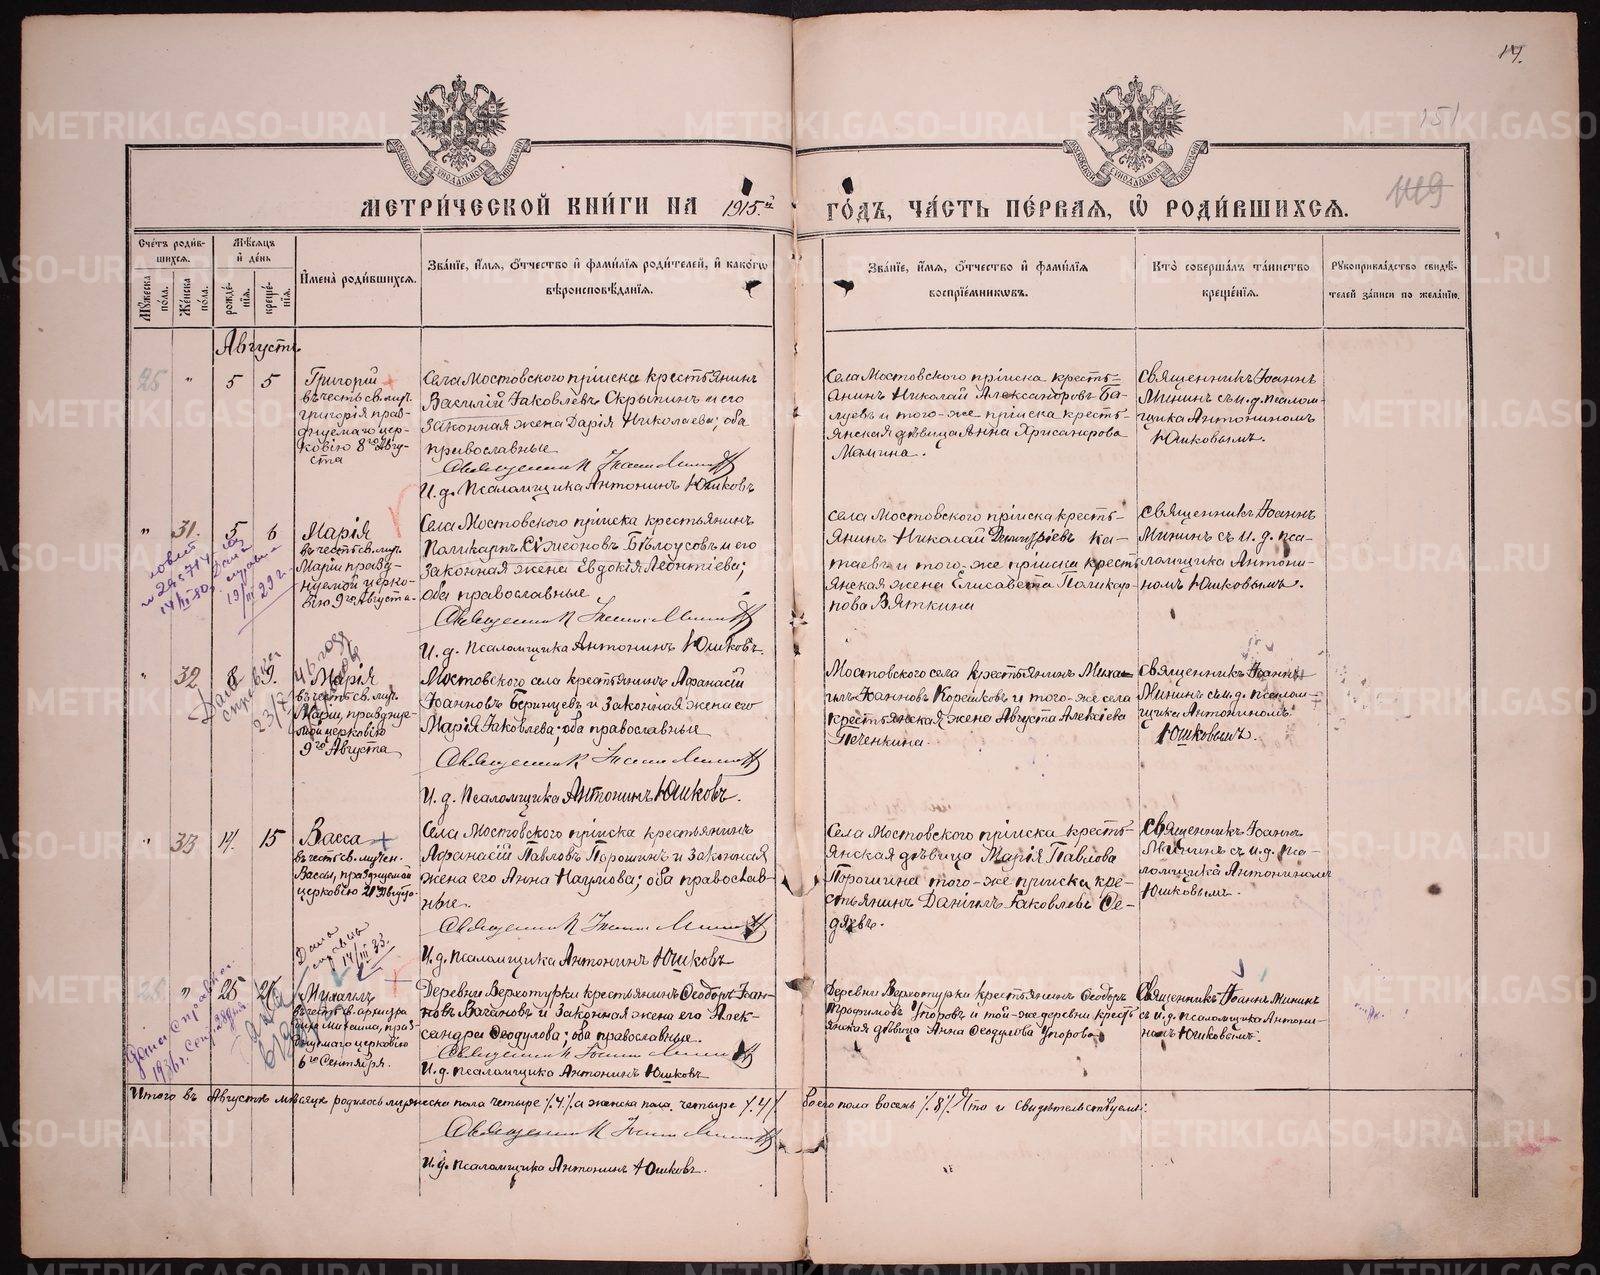 17.
151
1119
МЕТРИЧЕСКОЙ КНИГИ НА 1915.й ГОДЪ, ЧАСТЬ ПЕРВАЯ, Ѡ РОДИВШИХСЯ.
Счетъ родившихся.
Мужеска пола.
Женска пола.
Мѣсяцъ и день
рожденія.
крещенія.
Имена родившихся.
Званіе, имя, отчество и фамилія родителей, и какогѡ вѣроисповѣданія.
Званіе, имя, отчество и фамилія воспріемниковъ.
Кто совершалъ таинство крещенія.
Рукоприкладство свидѣтелей записи по желанію.
Августъ
25 " 5 5
Григорій
въ честь св. муч.
Григорія празд-
нуемаго цер-
ковію 8го Авгу-
ста
Села Мостовского пріиска крестьянинъ
Василій Іаковлевъ Скрыпинъ и его
законная жена Дарія Николаева; оба
православные
Священник Іоанн Минин
И. д. Псаломщика Антонинъ Юшковъ
Села Мостовского пріиска кресть-
янинъ Николай Александровъ Ба-
луевъ и того-же пріиска кресть-
янская дѣвица Анна Хрисанфова
Мамина.
Священникъ Іоаннъ
Мининъ съ и. д. псалом-
щика Антониномъ
Юшковымъ.
" 31. 5 6
Марія
въ честь св. муч.
Маріи празд-
нуемой церко-
вію 9го Августа.
Села Мостовского пріиска крестьянинъ
Поликарпъ Симеоновъ Бѣлоусовъ и его
законная жена Евдокія Леонтіева;
оба православные
Священник Іоанн Минин
И. д. Псаломщика Антонинъ Юшковъ.
Села Мостовского пріиска кресть-
янинъ Николай Димитріевъ Ка-
таевъ и того-же пріиска кресть-
янская жена Елисавета Поликар-
пова Вяткина
Священникъ Іоаннъ
Мининъ съ и. д. пса-
ломщика Антони-
номъ Юшковымъ.
" 32 8 9.
Марія
въ честь св. муч.
Маріи, празднуе-
мой церковію
9го Августа
Мостовского села крестьянинъ Афанасій
Іоанновъ Беринцевъ и законная жена его
Марія Іаковлева; оба православные
Священник Іоанн Минин
И. д. Псаломщика Антонинъ Юшковъ.
Мостовского села крестьянинъ Миха-
илъ Іоанновъ Корешковъ и того-же села
крестьянская жена Августа Алексіева
Печенкина.
Священникъ Іоаннъ
Мининъ съ и. д. псалом-
щика Антониномъ
Юшковымъ.
" 33 14. 15
Васса
въ честь св. мучен.
Вассы, празднуемой
церковію 21го Авгус.
Села Мостовского пріиска крестьянинъ
Афанасій Павловъ Порошинъ и законная
жена его Анна Наумова; оба православ-
ные.
Священник Іоанн Минин
И. д. псаломщика Антонинъ Юшковъ
Села Мостовского пріиска кресть-
янская дѣвица Марія Павлова
Порошина того-же пріиска кре-
стьянинъ Даніилъ Іаковлевъ Се-
дяевъ.
Священникъ Іоаннъ
Мининъ съ и. д. пса-
ломщика Антониномъ
Юшковымъ.
Дана
справка
14/III 33.
" 25 26
Михаилъ
въ честь св. архистра
тига Михаила, праз-
днуемаго церковію
6го Сентября.
Деревни Верхотурки крестьянинъ Ѳеодоръ Іоан-
новъ Вагановъ и законная жена его Алек-
сандра Ѳеодулова; оба православные.
Священник Іоанн Минин
И. д. псаломщика Антонинъ Юшковъ
Деревни Верхотурки крестьянинъ Ѳеодоръ
Трофимовъ Упоровъ и той-же деревни кресть
янская дѣвица Анна Ѳеодулова Упорова
Священникъ Іоаннъ Мининъ
съ и. д. псаломщика Антони-
номъ Юшковымъ.
Итого въ Августѣ мѣсяцѣ родилось мужеска пола четыре /.4./ а женска пола четыре /.4./ обоего пола восемь /.8./ Что и свидѣтельствуемъ:
Священник Іоанн Минин
И. д. псаломщика Антонинъ Юшковъ.
METRIKI.GASO-URAL.RU